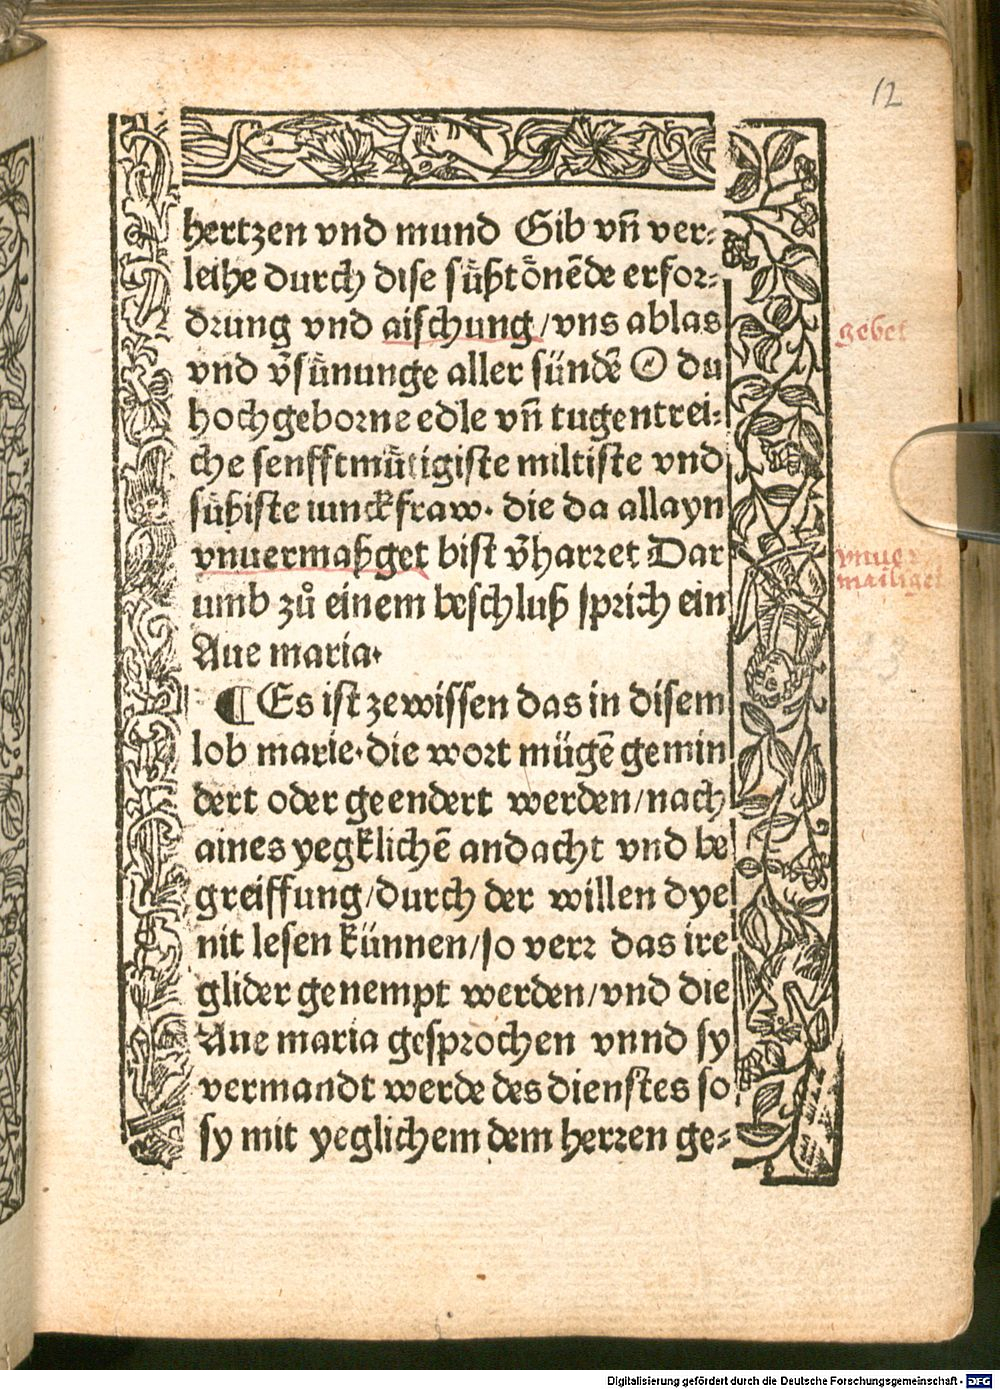 12
hertzen vnd mund Gib vn̄ ver⸗
leihe durch dise sůßtōnēde erfor⸗
drung vnd aischung/vns ablas
vnd v̄sůnunge aller sündē O du
hochgeborne edle vn̄ tugentrei⸗
che senfftmůtigiste miltiste vnd
sůßiste iunckfraw. die da allayn
vnuermaßget bist v̄harret Dar
umb zů einem beschluß sprich ein
Aue maria.
¶ Es ist zewissen das in disem
lob marie.die wort mügē gemin
dert oder geendert werden/nach
aines yegklichē andacht vnd be
greiffung/durch der willen dye
nit lesen künnen/so verr das ire
glider genempt werden/vnd die
Aue maria gesprochen vnnd sy
vermandt werde des dienstes so
sy mit yeglichem dem herren ge⸗
gebet
vnuer
mailiget
Digitalisierung gefördert durch die Deutsche Forschungsgemeinschaft - DFG